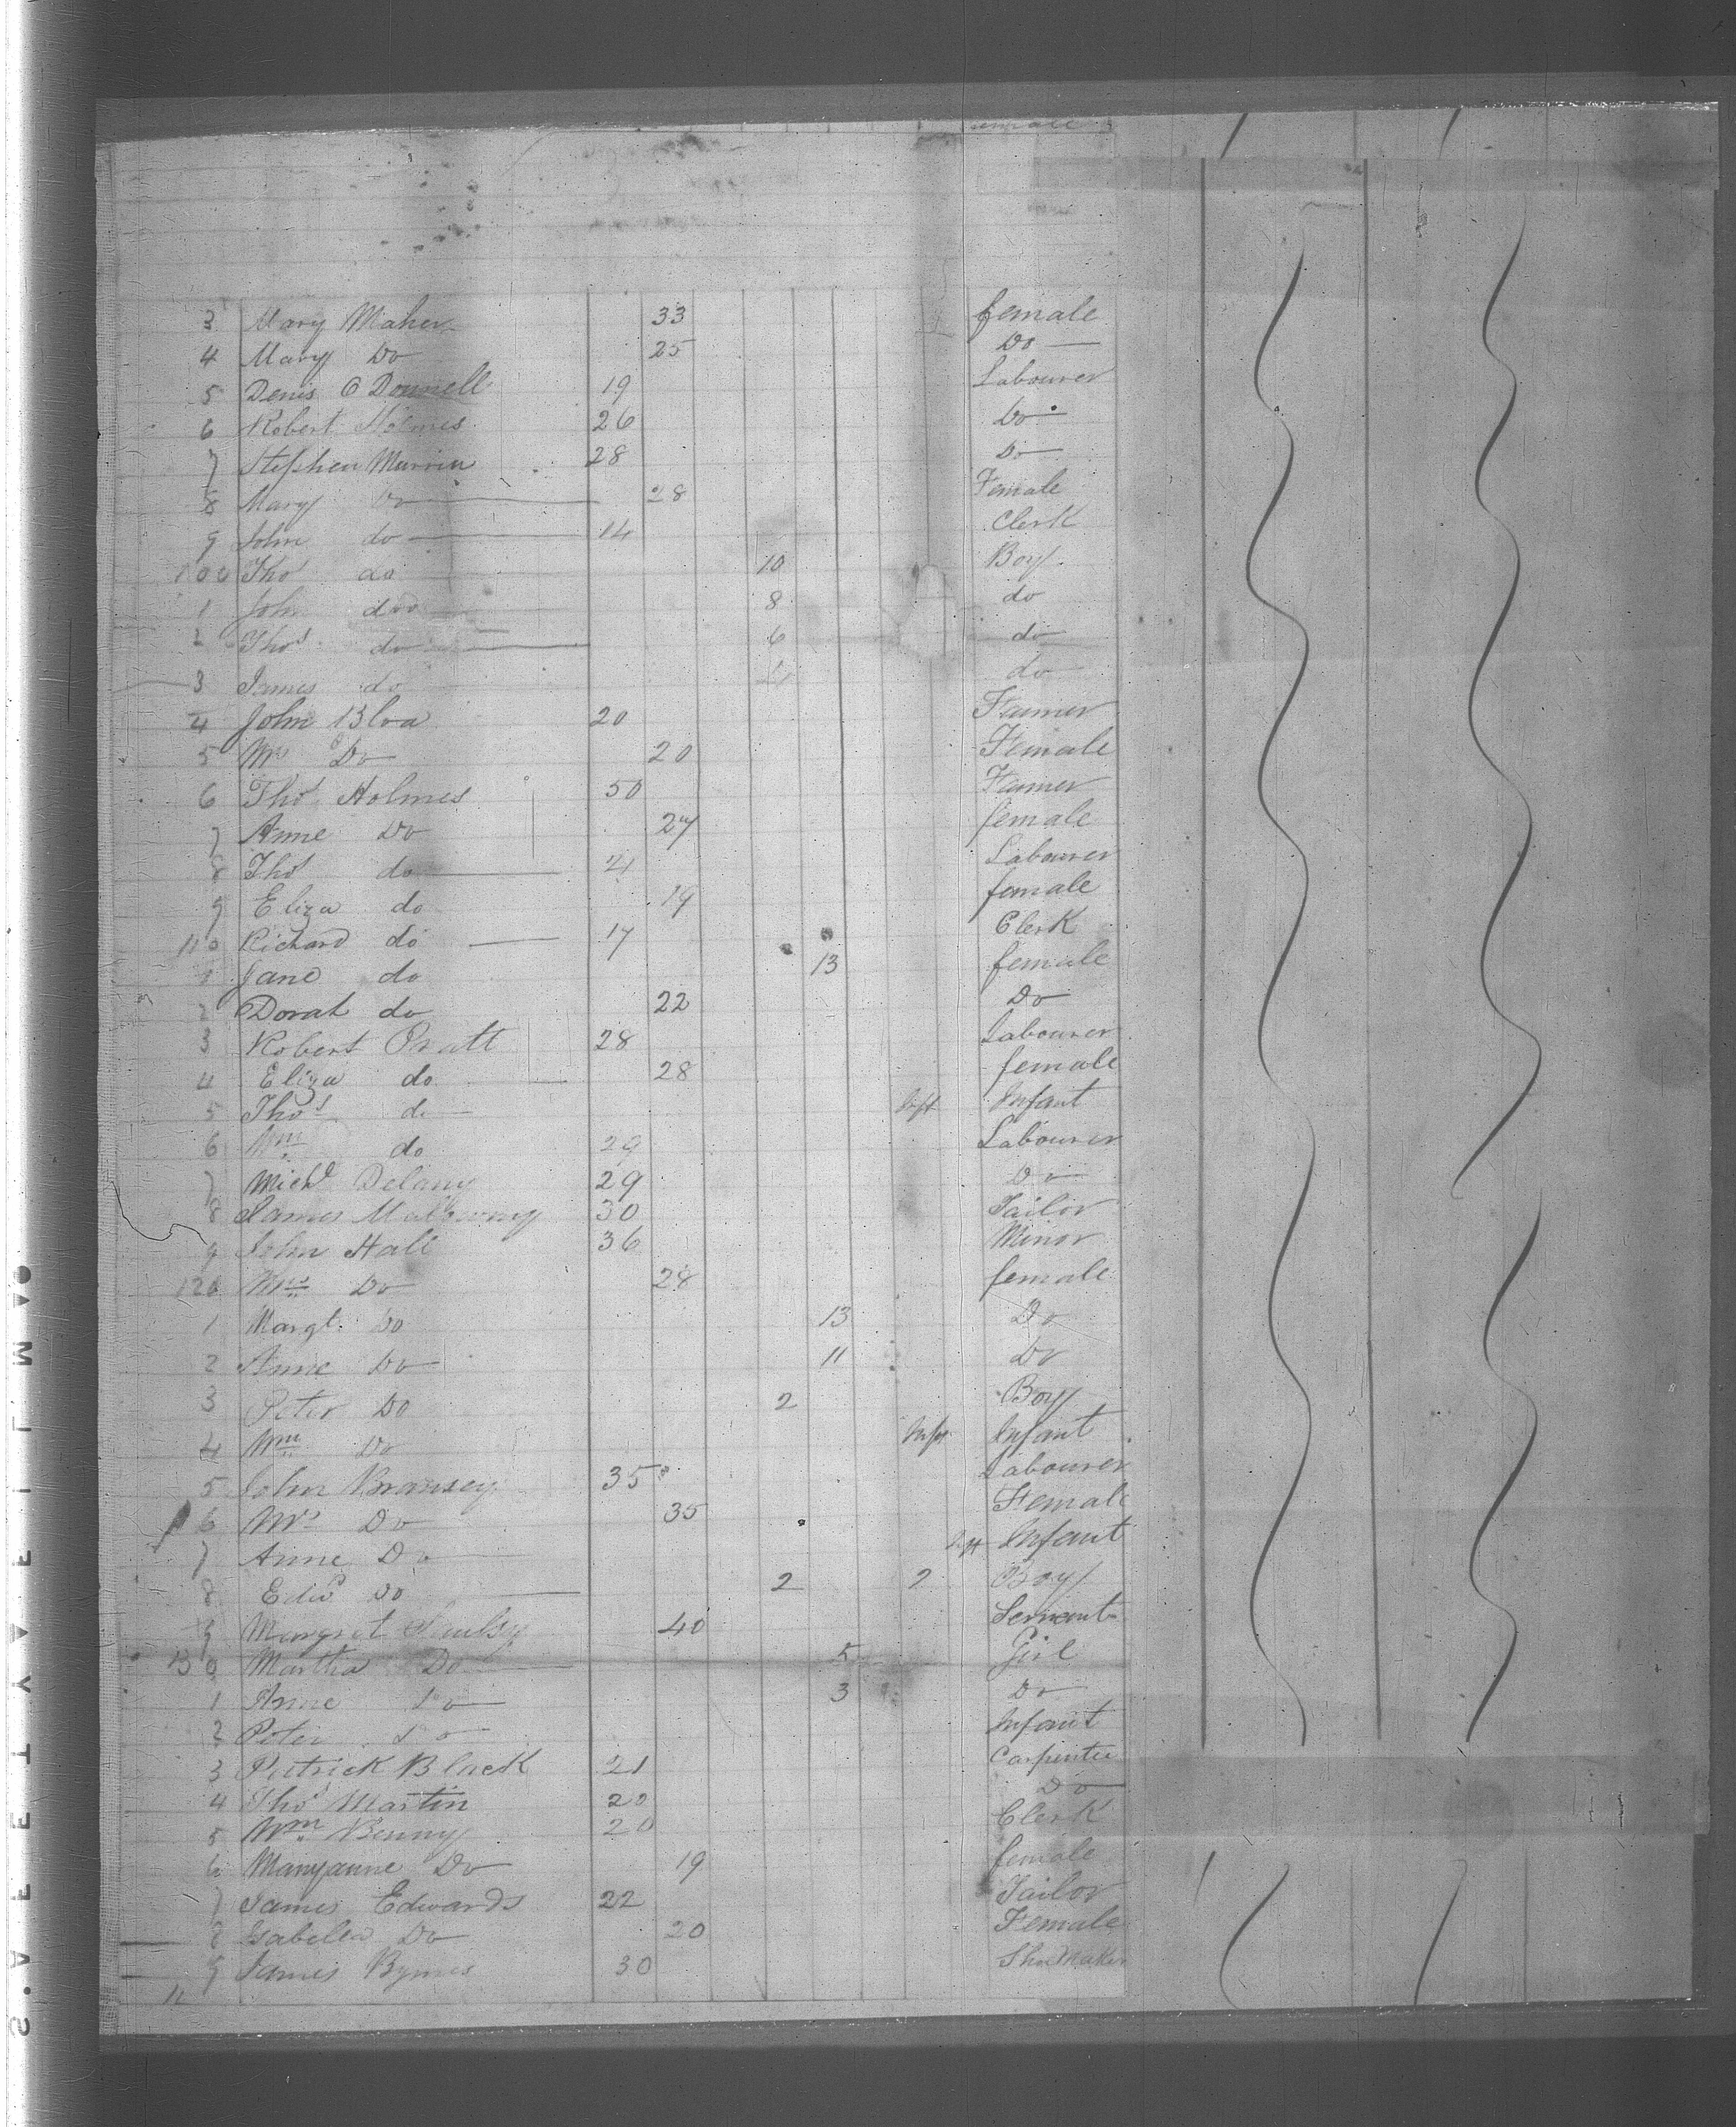 female
3 Mary Maher 33 female
4 Mary Do 25 Do
5 Denis O Donnell 19 Labourer
6 Robert Holmes 26 Do
7 Stephen Murrin 28 Do
8 Mary Do 28 Female
9 John do 14 Clerk
100 Thos do 10 Boy
1 John do 8 do
2 Thos do 6 do
3 James do 4 do
4 John Bloa 20 Farmer
5 Mrs Do 20 Female
6 Thos Holmes 50 Farmer
7 Anne Do 27 female
8 Thos do 21 Labourer
9 Eliza do 19 female
110 Richard do 17 Clerk
1 Jane do 13 female
2 Dorah do 22 Do
3 Robert Pratt 28 Labourer
4 Eliza do 28 female
5 Thos do Inft Infant
6 Wm do 29 Labourer
7 Michl Delany 29 Do
8 James 30 Tailor
9 John Hall 36 Minor
120 Mrs Do 28 female
1 Margt. Do 13 Do
2 Anne Do 11 Do
3 Peter Do 2 Boy
4 Wm Do Inft Infant
5 John Bransey 35 Labourer
6 Mrs Do 35 Female
7 Anne Do Inft Infant
8 Edwd Do 2 2 Boy
9 Margret 40 Servant
130 Martha Do 5 Girl
1 Anne Do 3 Do
2 Peter Do Infant
3 Patrick Black 21 Carpenter
4 Thos Martin 20 Do
5 Wm Benny 20 Clerk
6 Maryanne Do 19 female
7 James Edwards 22 Tailor
8 Isabella Do 20 Female
9 James Byrnes 30 ShoeMaker